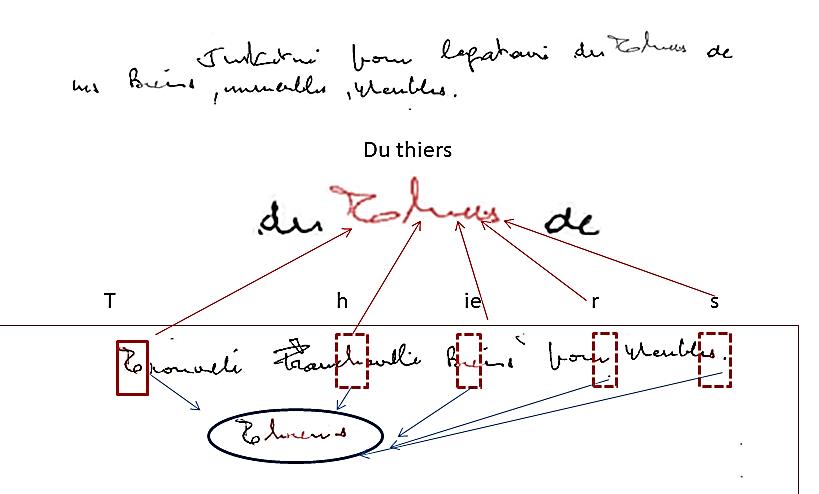 Institué pour légataire du Tthiers de
mes Biens, immeubles, Meubles.
Du thiers
du Thiers de
T h ie r s
Trouvelé Franchevelle Biens pour Meubles.
Thiers